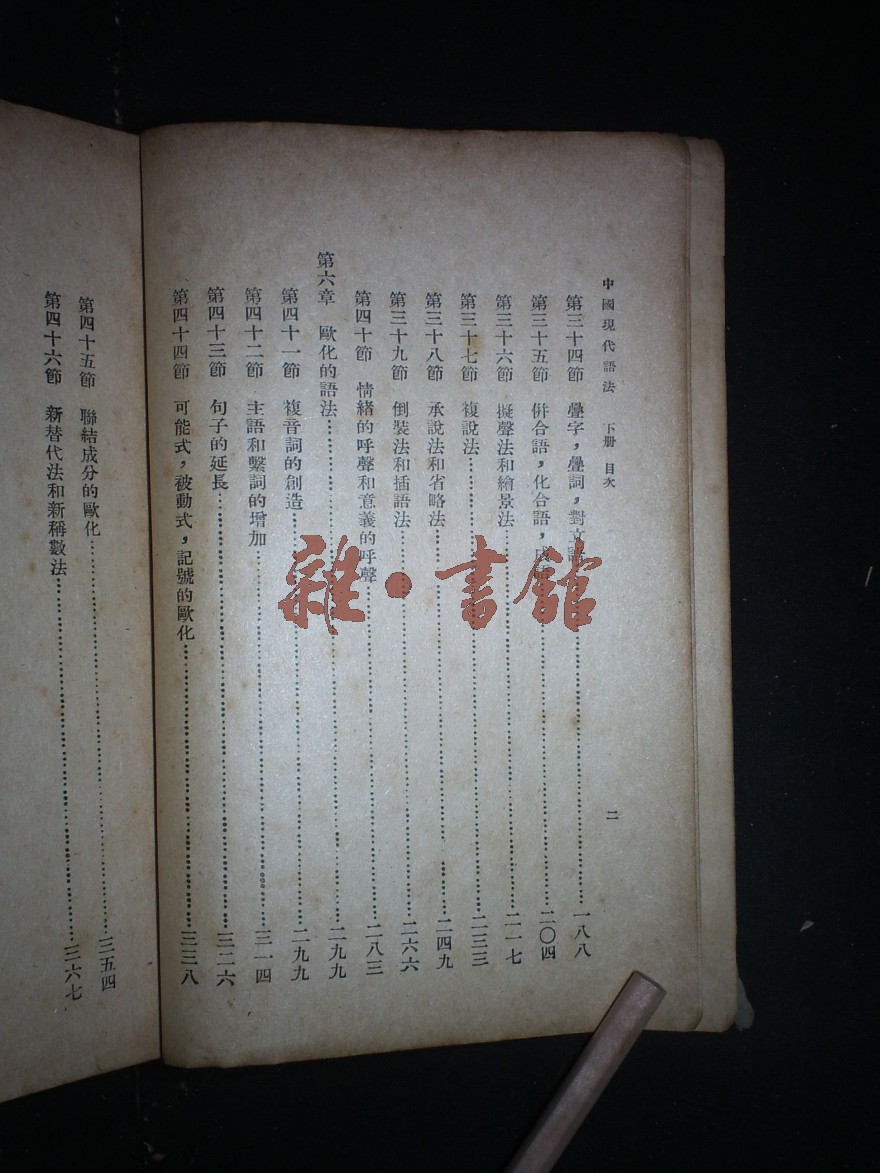 中國現代語法 下册 目次 二
第三十四節 疊字，疊詞，對立語……一八八
第三十五節 併合語，化合語，成……二〇四
第三十六節 擬聲法和繪景法……二一七
第三十七節 複說法……二三三
第三十八節 承說法和省略法……二四九
第三十九節 倒裝法和插語法……二六六
第四十節 情緒的呼聲和意義的呼聲……二八三
第六章 歐化的語法……二九九
第四十一節 複音詞的創造……二九九
第四十二節 主語和繫詞的增加……三一四
第四十三節 句子的延長……三二六
第四十四節 可能式，被動式，記號的歐化……三三八
第四十五節 聯結成分的歐化……三五四
第四十六節 新替代法和新稱數法……三六七
雜·書館